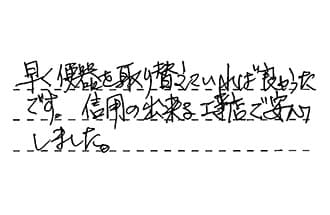 早く便器を取り替えていれば良かった
です。信用の出来る工事店で安心
しました。